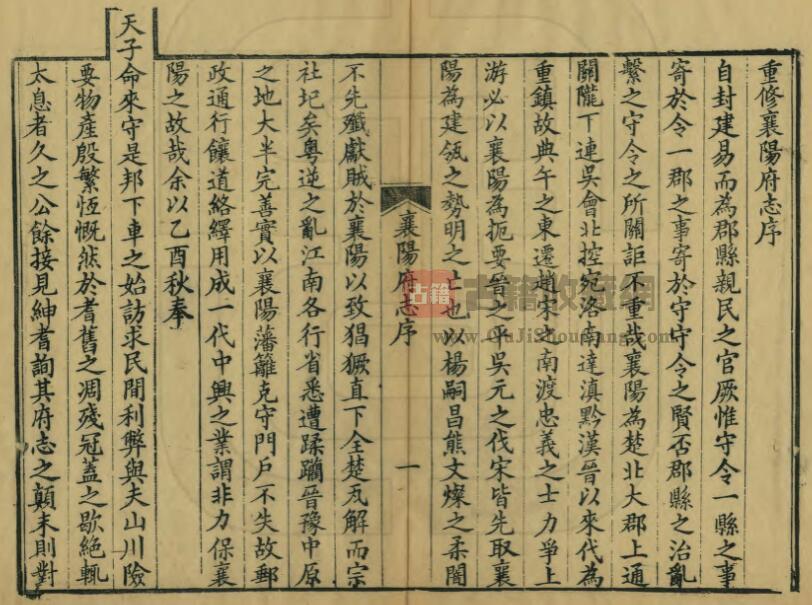 重修襄陽府志序
自封建易而為郡縣親民之官厥惟守令一縣之事
寄於令一郡之事寄於守守令之賢否郡縣之治亂
繫之守令之所關詎不重哉襄陽為楚北大郡上通
關隴下連吳會北控宛洛南達滇黔漢晉以來代為
重鎮故典午之東遷趙宋之南渡忠義之士力爭上
游必以襄陽為扼要晉之平吳元之伐宋皆先取襄
陽為建瓴之勢明之亡也以楊嗣昌熊文燦之柔闇
襄陽府志序
一
不先殲獻賊於襄陽以致猖獗直下全楚瓦解而宗
社圮矣粵逆之亂江南各行省悉遭蹂躪晉豫中原
之地大半完善實以襄陽藩籬克守門戶不失故郵
政通行饟道絡繹用成一代中興之業謂非力保襄
陽之故哉余以乙酉秋奉
天子命來守是邦下車之始訪求民間利弊與夫山川險
要物產殷繁恆慨然於耆舊之凋殘冠蓋之歇絕輒
太息者久之公餘接見紳耆詢其府志之顛末則對
古籍
古籍收藏網
www.GuJiShouCang.com